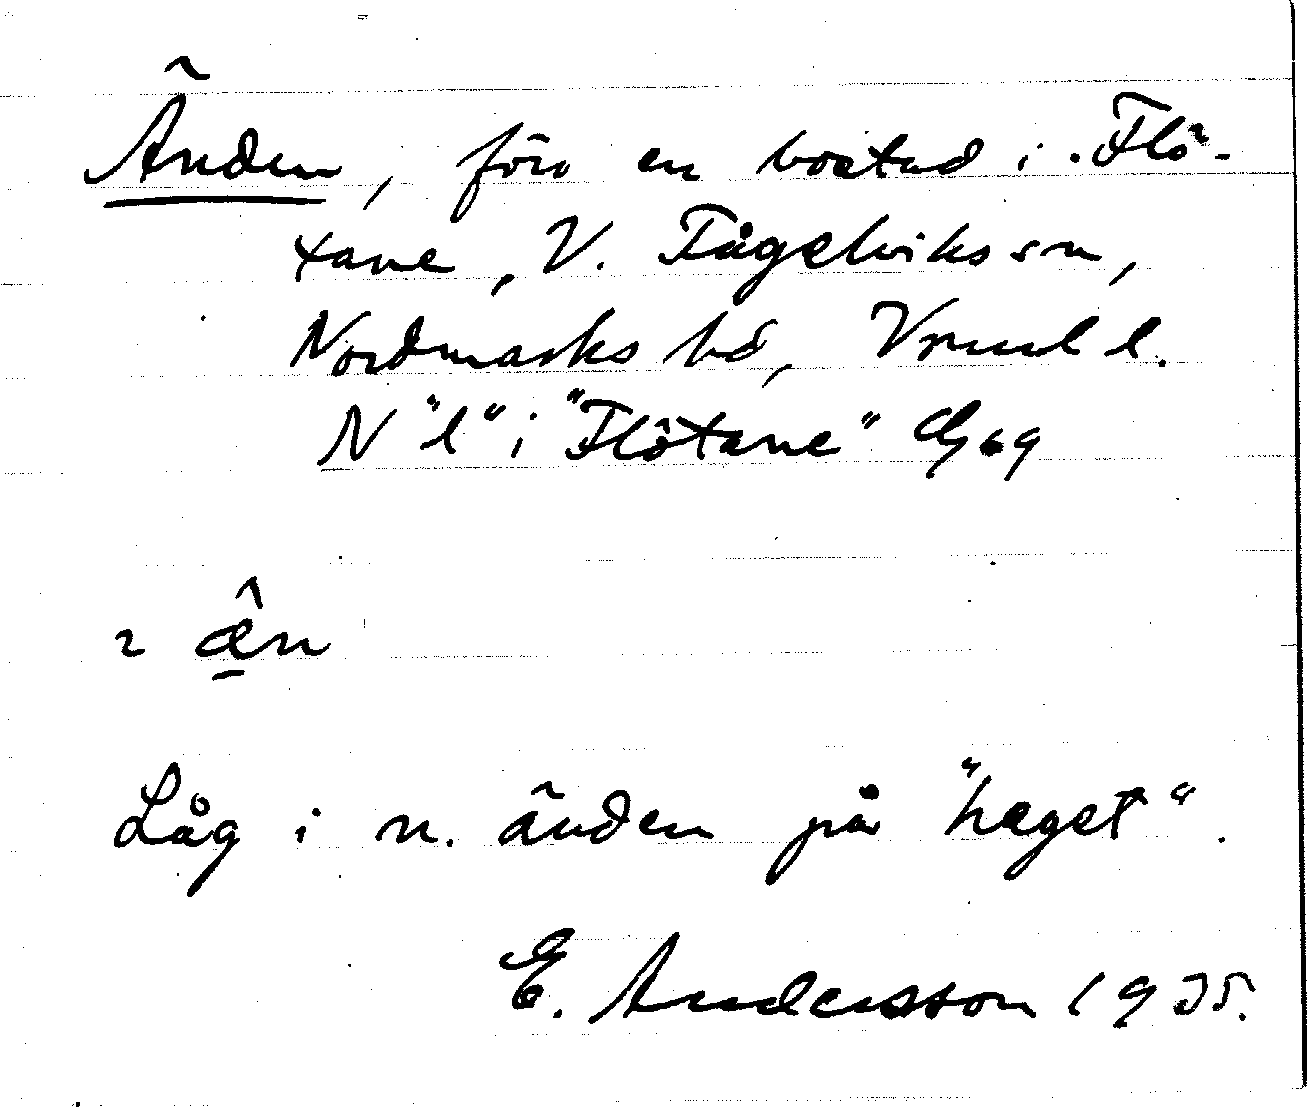 Änden, förr en bostad i Flö-
tane, V. Fågelviks sn,
Nordmarks hd, Vrml l.
N "l" i "Flötane" Cg 69
2 æ̂n
Låg i n. änden på "heget".
E. Andersson 1935.